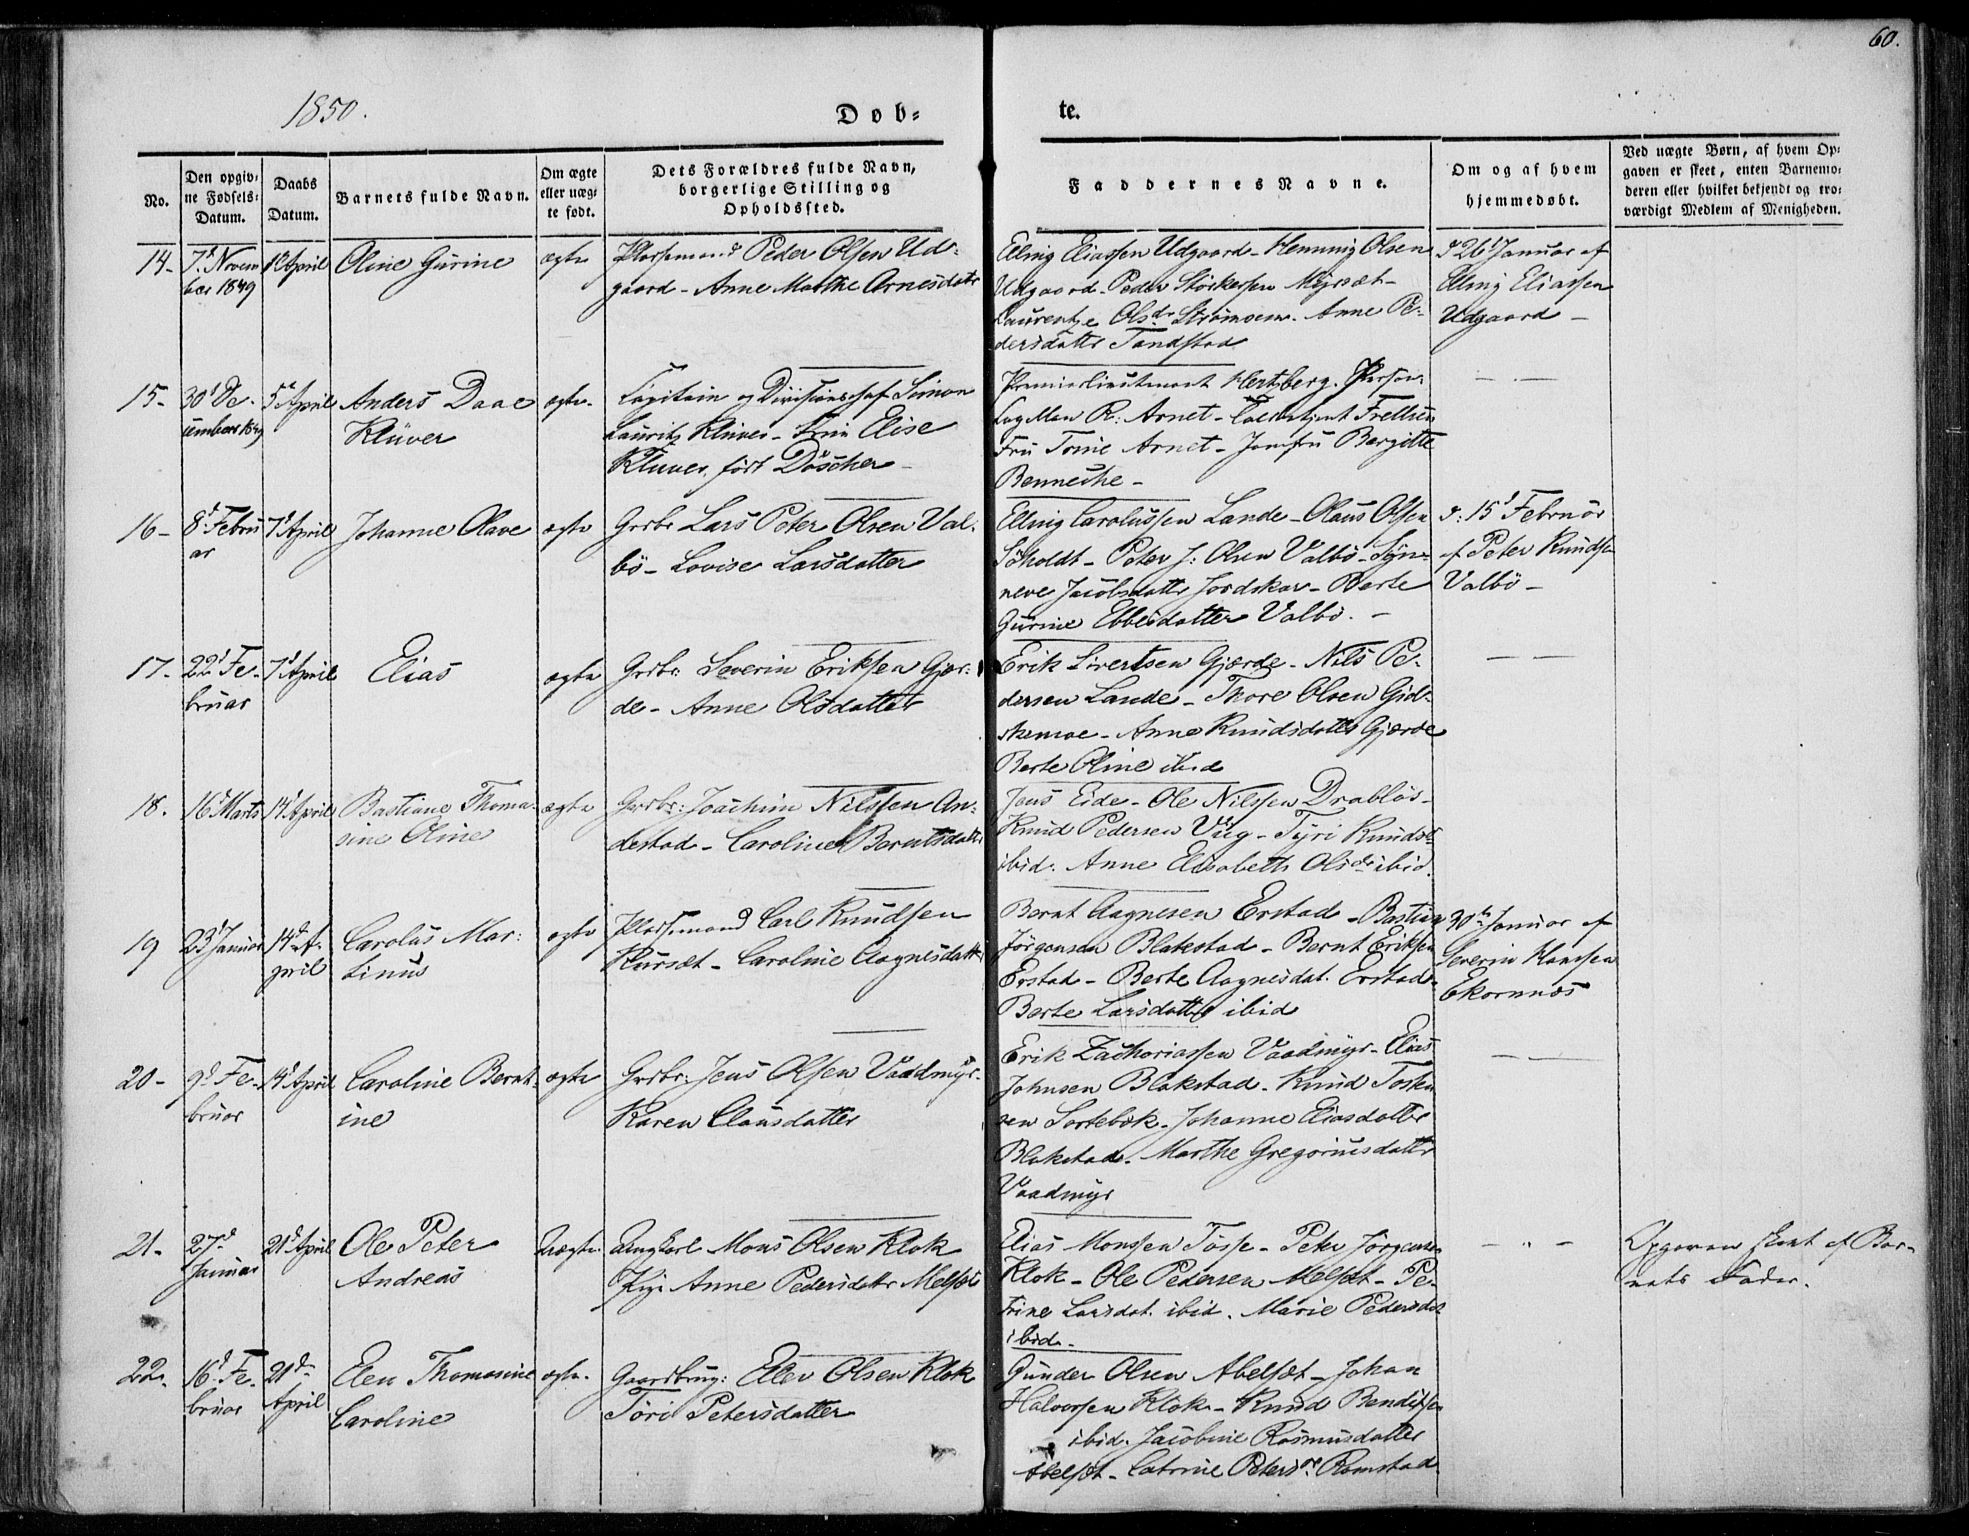 60.
1850.
Døb-
te.
No.
Den opgiv-
ne Fødsels-
Datum.
Daabs
Datum.
Barnets fulde Navn.
Om ægte
eller uæg-
te født.
Dets Forældres fulde Navn,
borgerlige Stilling og
Opholdssted.
Faddernes Navne.
Om og af hvem
hjemmedøbt.
Ved uægte Børn, af hvem Op-
gaven er skeet, enten Barnemo-
deren eller hvilket bekjendt og tro-
værdigt Medlem af Menigheden.
14-
7d Novem
ber 1849
April
Oline Gurine
ægte
Pladsemand Peder Olsen Ud-
gaard - Anne Marthe Arnesdatter
Elling Eliassen Udgaard - Henning Olsen
Udgaard - Peder Størkersen Myrsæt -
Laurentze Olsdr Strømmen. Anne Pe-
dersdatter Tandstad
d 26d Januar af
Elling Eliassen
Udgaard -
15-
30d De-
cember 1849
5d April
Anders Daae
Klüver
ægte
Capitain og Divisionschef Simon
Lauritz Klüver - Elise
Klüver, født Döscher -
Premierlieutenant Hertzberg.
R: Arnet - Frettum
Fru Arnet - Jomfru Bergitte
Benneche -
16-
8d Febru
ar
7d April
Johanne Olave
ægte
Grdbr Lars Peter Olsen Val-
bö - Lovise Larsdatter
Elling Carolussen Lande - Olaus Olsen
Söholdt - Peter J: Olsen Valbö - Syn-
neve Jacobsdatter Jordskar - Berte
Gurine Ebbesdatter Valbö. -
d: 15d Februar
af Peter Knudsen
Valbö -
17-
22d Fe-
bruar
7d April
Elias
ægte
Grdbr: Severin Eriksen Gjær-
de - Anne Olsdatter
Erik Sivertsen Gjærde - Nils Pe-
dersen Lande - Thore Olsen Gids-
kemoe - Anne Knudsdatter Gjærde
Berte Oline ibid
18.
16d Marts
14d April
Bastiane Thoma-
sine Oline
ægte
Grdbr: Joachim Nilssen An-
destad - Caroline Berntsdatter
Jens Eide - Ole Nilssen Drabløs -
Knud Pedersen Viig - Tyri Knudsd
ibid. Anne Elisabeth Olsdr ibid.
19
23d Januar
14d A-
pril
Carolus Mar-
tinus
ægte
Pladsemand Carl Knudsen
Kursæt - Caroline Aagnesdatter
Bernt Aagnesen Erstad - Bastian
Jörgensen Blakstad - Bernt Eriksen
Erstad - Berte Aagnesdat. Erstad -
Berte Larsdatter ibid
30d Januar af
Severin Hansen
Ekornnæs
20-
9d Fe-
bruar
14d April
Caroline Bernt-
ine
ægte
Grdbr: Jens Olsen Vaadmyr -
Karen Clausdatter
Erik Zachariassen Vaadmyr - Elias
Johnsen Blakstad - Knud Tosten
sen Sortebæk - Johanne Eliasdatter
Blakstad. Marthe Gregoriusdatter
Vaadmyr
21-
27d
Januar
21d April
Ole Peter
Andreas
Uægte
Ungkarl Mons Olsen Klok
Pige Anne Pedersdatter Melsæt
Elias Monssen Tösse - Peter Jörgensen
Klok - Ole Pedersen Melsæt - Pe-
trine Larsdat. ibid. Marie Pedersdat
ibid -
Opgaven skeet af Bar-
nets Fader.
22.
16d Fe-
bruar
21d
April
Elen Thomasine
Caroline
ægte
Gaardbrug: Ellev Olsen Klok
Töri Petersdatter
Gunder Olsen Abelsæt - Johan
Halvorsen Klok - Knud Bendixsen
ibid. Jacobine Rasmusdatter
Abelsæt - Catrine Petersdr Ramstad